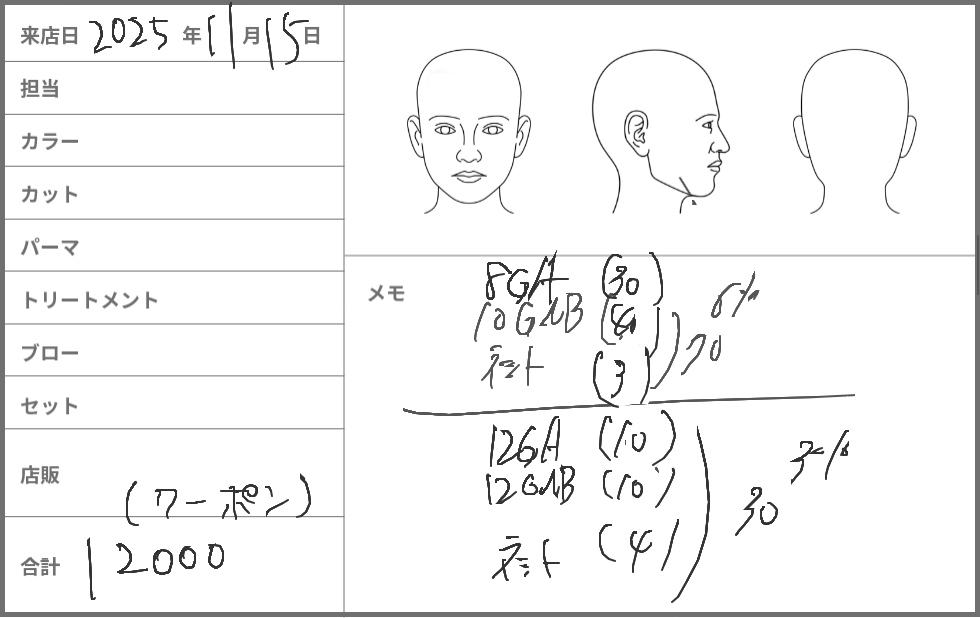 来店日 2025 年 11 月 15 日
担当
カラー
カット
パーマ
トリートメント
ブロー
セット
店販
(クーポン)
合計 12000
メモ
8GA (30)
10GMB
(3)
70
6%
12GA (10)
12GMB (10)
(4)
30
3%